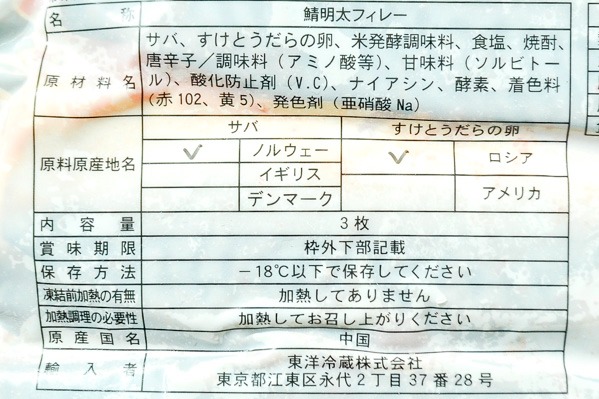 名称 鯖明太フィレー
原材料名 サバ、すけとうだらの卵、米発酵調味料、食塩、焼酎、
唐辛子／調味料（アミノ酸等）、甘味料（ソルビトー
ル）、酸化防止剤（V.C）、ナイアシン、酵素、着色料
（赤102、黄5）、発色剤（亜硝酸Na）
原料原産地名 サバ すけとうだらの卵
✓ ノルウェー ✓ ロシア
イギリス
デンマーク アメリカ
内容量 3枚
賞味期限 枠外下部記載
保存方法 −18℃以下で保存してください
凍結前加熱の有無 加熱してありません
加熱調理の必要性 加熱してお召し上がりください
原産国名 中国
輸入者 東洋冷蔵株式会社
東京都江東区永代2丁目37番28号